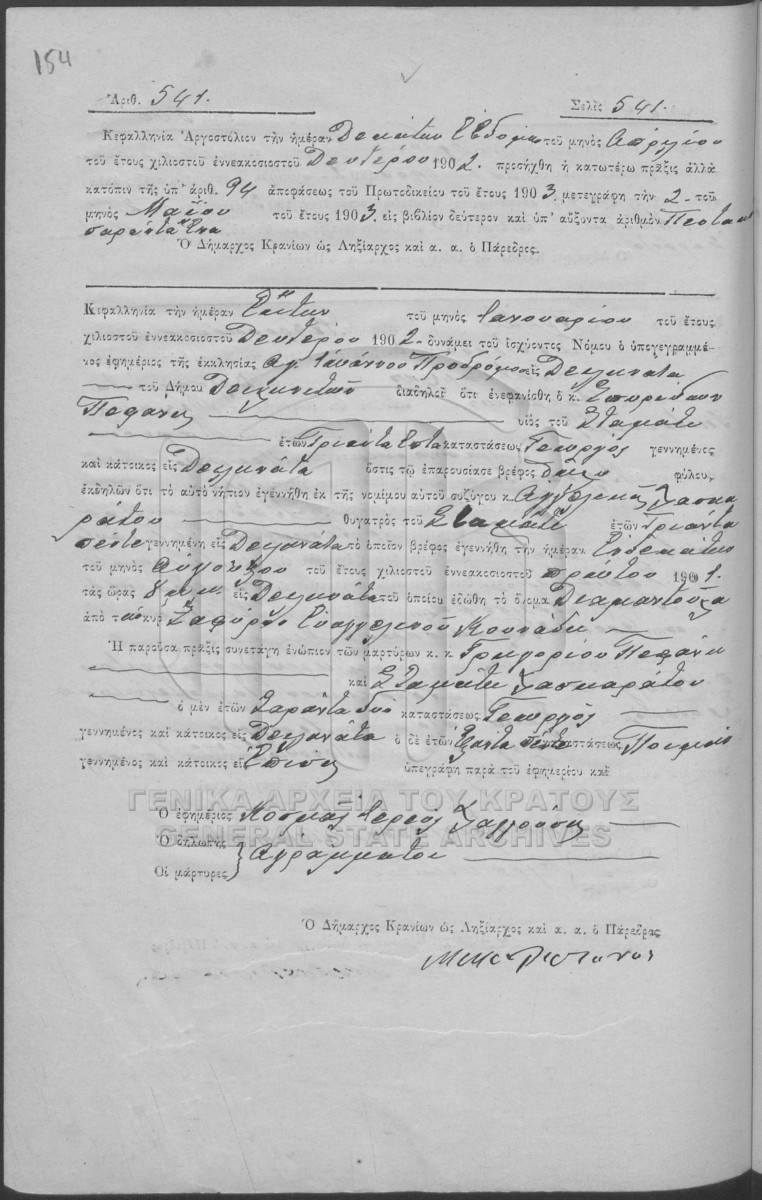 154
Ἀριθ. 541. Σελὶς 541.
Κεφαλληνία Ἀργοστόλιον τὴν ἡμέραν Δεκάτην Ἑβδόμην τοῦ μηνὸς Ἀπριλίου
τοῦ ἔτους χιλιοστοῦ ἐννεακοσιοστοῦ Δευτέρου 1902. προσήχθη ἡ κατωτέρω πρᾶξις ἀλλὰ
κατόπιν τῆς ὑπ' ἀριθ. 94 ἀποφάσεως τοῦ Πρωτοδικείου τοῦ ἔτους 1903, μετεγράφη τὴν 2 τοῦ
μηνὸς Μαΐου τοῦ ἔτους 1903. εἰς βιβλίον δεύτερον καὶ ὑπ' αὔξοντα ἀριθμὸν Πεντακ
σαράντα ἕνα
Ὁ Δήμαρχος Κρανίων ὡς Ληξίαρχος καὶ α. α. ὁ Πάρεδρος.
Κεφαλληνία τὴν ἡμέραν Ἕκτην τοῦ μηνὸς Ἰανουαρίου τοῦ ἔτους
χιλιοστοῦ ἐννεακοσιοστοῦ Δευτέρου 1902 δυνάμει τοῦ ἰσχύοντος Νόμου ὁ ὑπογεγραμμέ-
νος ἐφημέριος τῆς ἐκκλησίας Ἁγ. Ἰωάννου Προδρόμου εἰς Δειλινάτα
τοῦ Δήμου διαδηλοῖ ὅτι ἐνεφανίσθη ὁ κ. Σπυρίδων
Πεφάνης υἱὸς τοῦ Σταμάτη
ἐτῶν Τριάντα Ἑπτὰ καταστάσεως Γεωργὸς γεννημένος
καὶ κάτοικος εἰς Δειλινάτα ὅστις τῷ ἐπαρουσίασε βρέφος θήλυ φύλου,
ἐκδηλῶν ὅτι τὸ αὐτὸ νήπιον ἐγεννήθη ἐκ τῆς νομίμου αὐτοῦ συζύγου κ. Ἀγγελικῆς Λασκα
ράτου θυγατρὸς τοῦ Σταμάτη ἐτῶν Τριάντα
πέντε γεννημένη εἰς Δειλινάτα τὸ ὁποῖον βρέφος ἐγεννήθη τὴν ἡμέραν Ἑνδεκάτην
τοῦ μηνὸς Αὐγούστου τοῦ ἔτους χιλιοστοῦ ἐννεακοσιοστοῦ πρώτου 1901.
τὰς ὥρας 8 εἰς Δειλινάτα τοῦ ὁποίου ἐδώθη τὸ ὄνομα Διαμαντούλα
ἀπὸ τὸν κυρ Ζαφύρη Εὐαγγελινοῦ Κουνάδη
Ἡ παροῦσα πρᾶξις συνετάγη ἐνώπιον τῶν μαρτύρων κ. κ. Γρηγορίου Πεφάνη
καὶ Σταμάτη Λασκαράτου
ὁ μὲν ἐτῶν Σαράντα δύο καταστάσεως Γεωργὸς
γεννημένος καὶ κάτοικος εἰς Δειλινάτα ὁ δὲ ἐτῶν Ἑξῆντα πέντε καταστάσεως Ποιμὴν
γεννημένος καὶ κάτοικος εἰς Ἐπίσης ὑπεγράφη παρὰ τοῦ ἐφημερίου καὶ
ΓΕΝΙΚΑ ΑΡΧΕΙΑ ΤΟΥ ΚΡΑΤΟΥΣ
GENERAL STATE ARCHIVES
Ὁ ἐφημέριος Κοσμᾶς Ἱερεὺς
Ὁ δηλωτὴς } Ἀγράμματοι
Οἱ μάρτυρες
Ὁ Δήμαρχος Κρανίων ὡς Ληξίαρχος καὶ α. α. ὁ Πάρεδρος